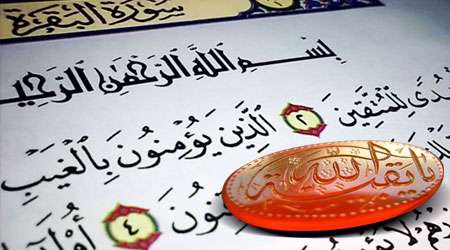 سُورَةُ البَقَرَةِ
بِسْمِ اللَّهِ الرَّحْمَٰنِ الرَّحِيمِ
هُدًى لِّلْمُتَّقِينَ ٢ الَّذِينَ يُؤْمِنُونَ بِالْغَيْبِ
٤ أُولَ
بقية الله